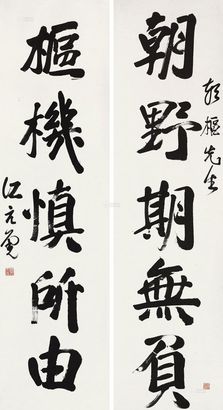 樞先生
朝野期無負
樞機慎所由
江亢虎